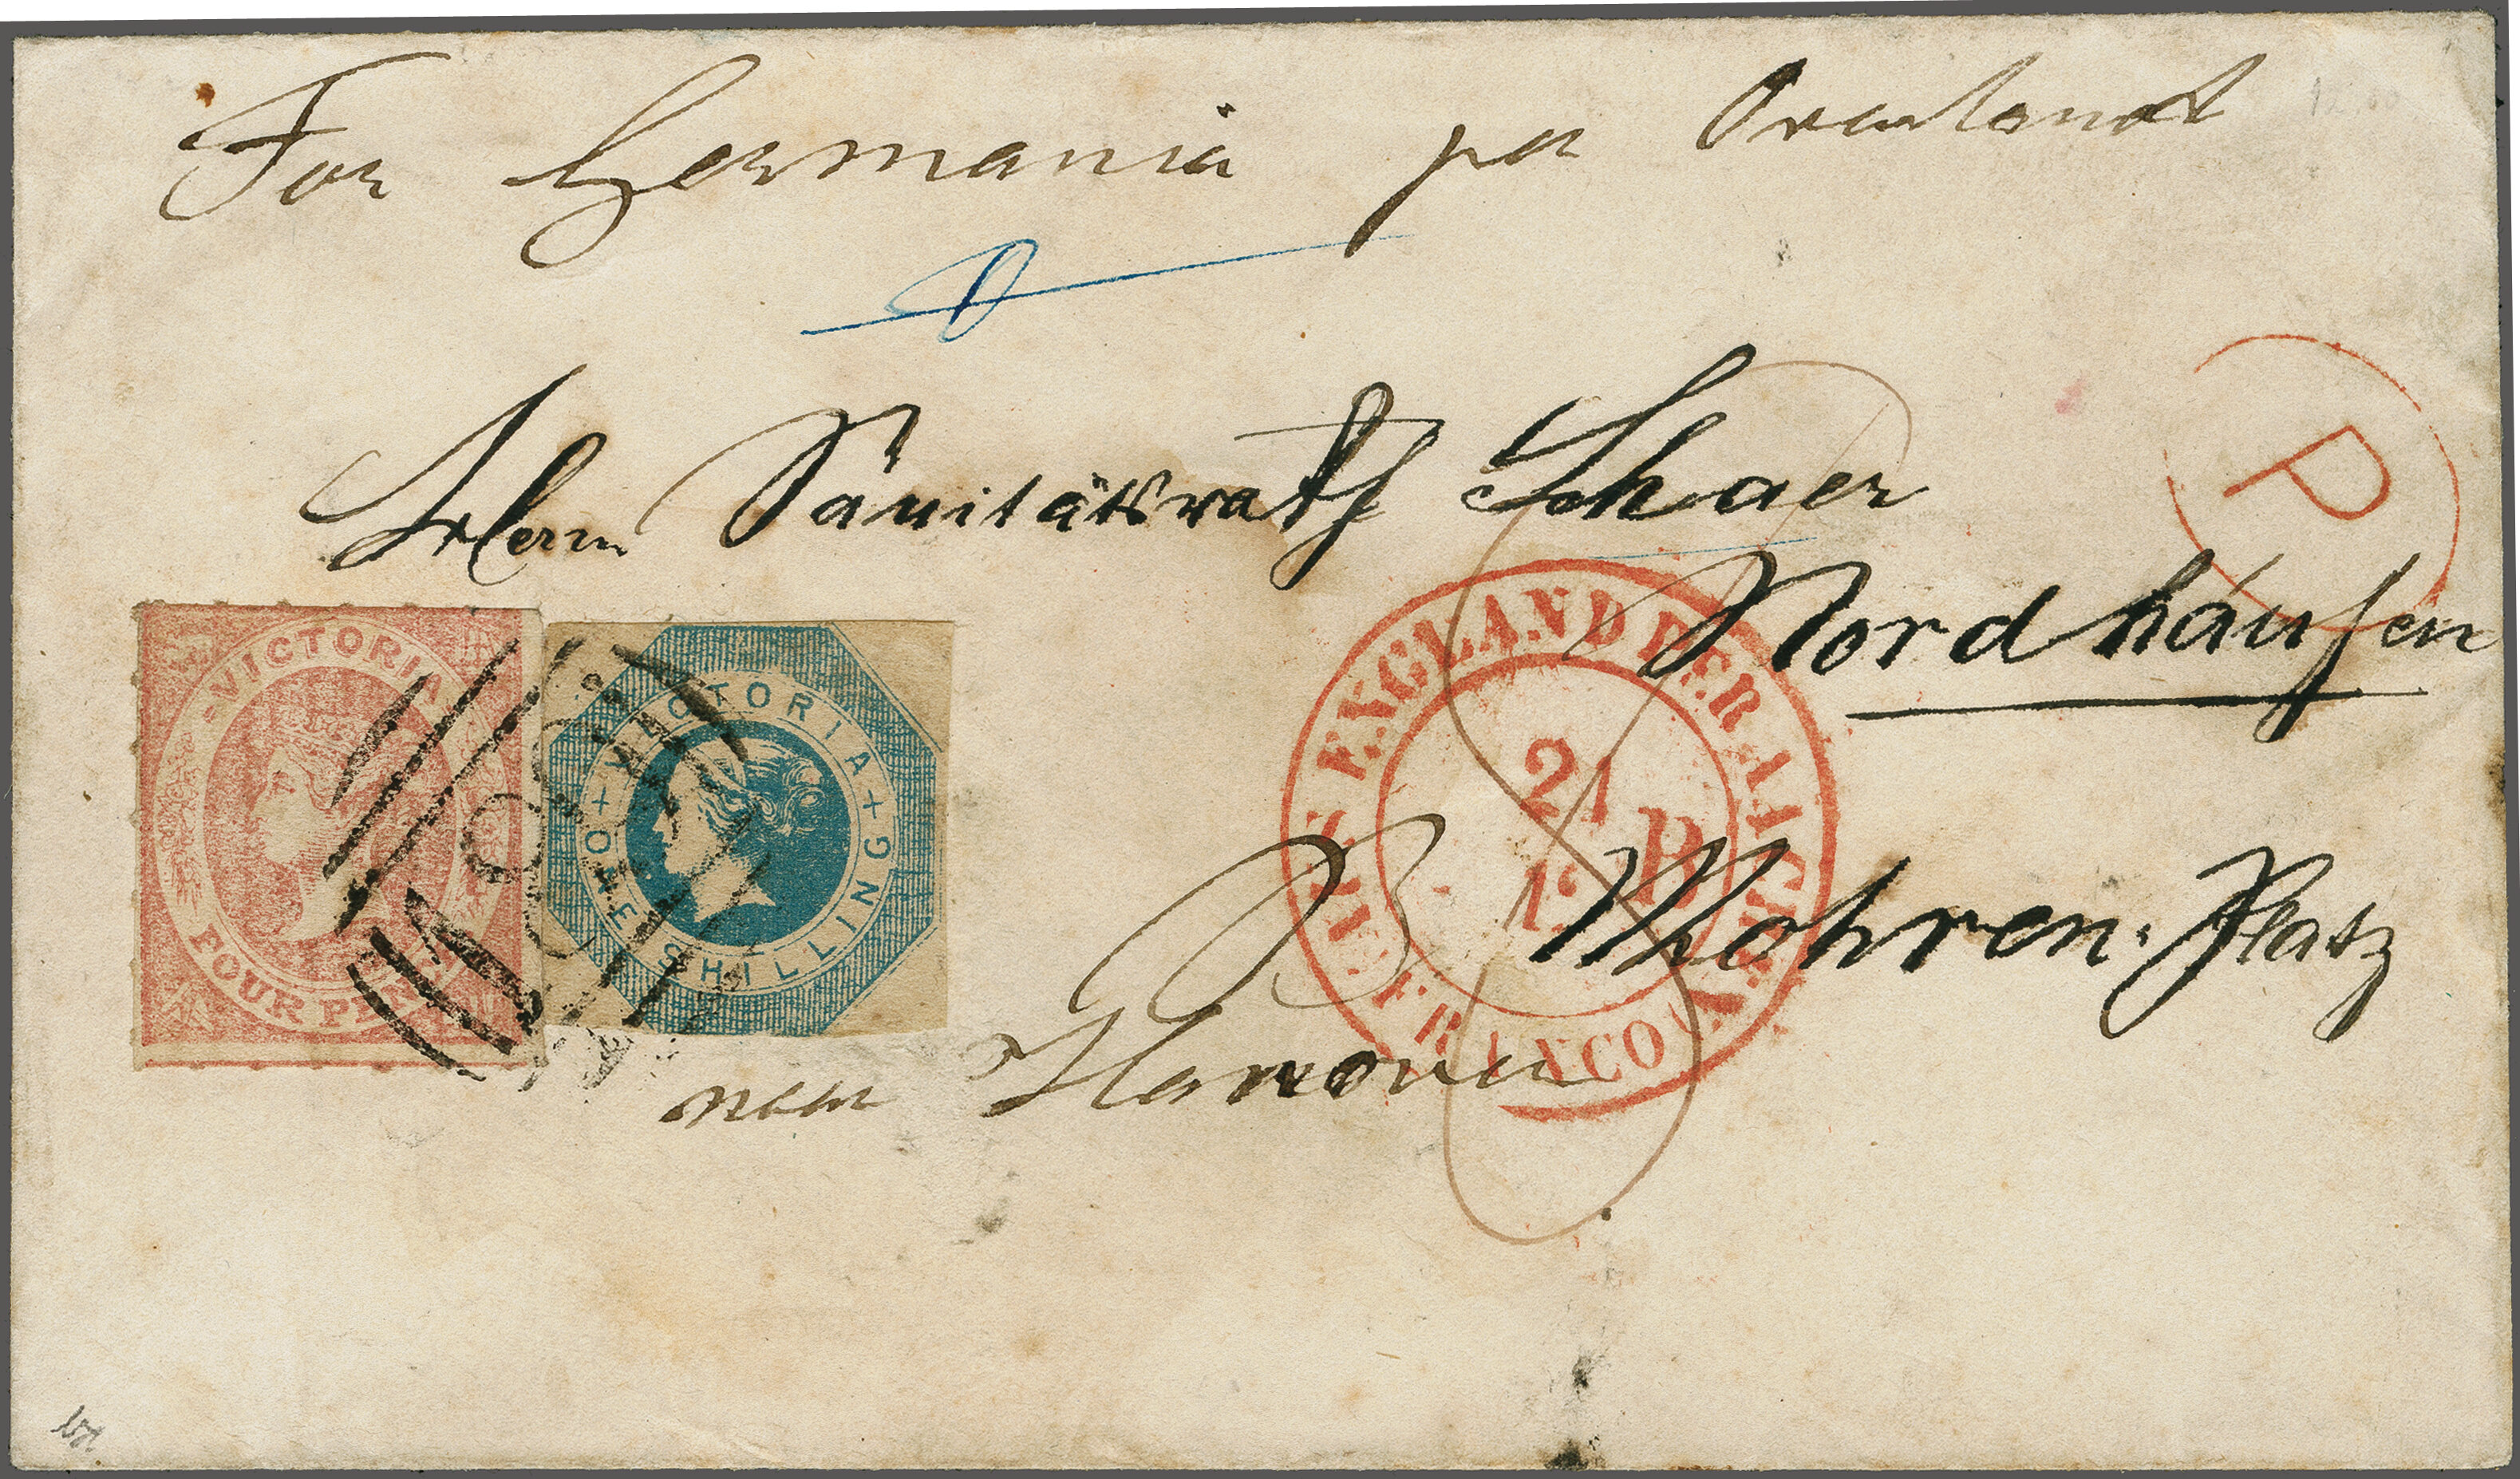 For Germania per Overland
Herrn Sanitätsrath Schaer
Nordhausen
P
VICTORIA
FOUR PENCE
VICTORIA + ONE SHILLING +
AUS ENGLAND PER AACHEN
FRANCO
21
B
Mohren-Platz
near Hanover